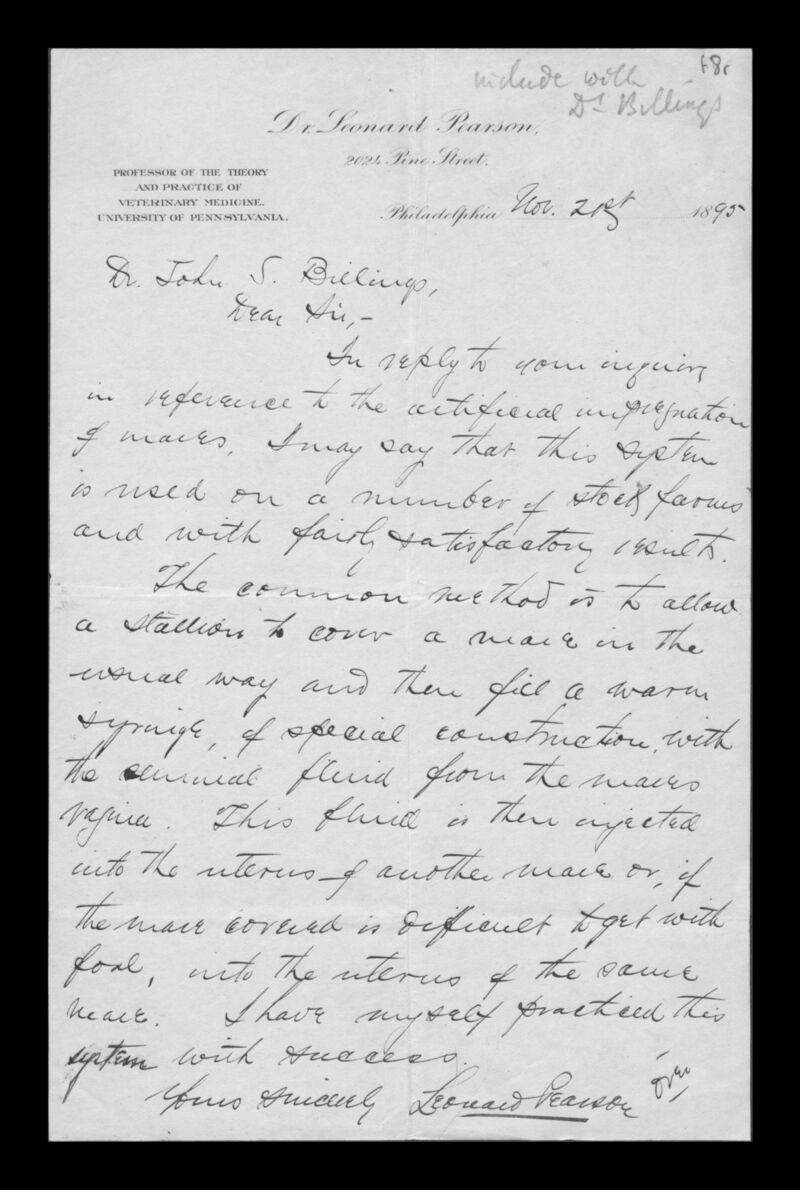 68r
include with
Dr Billings
Dr. Leonard Pearson,
2024 Pine Street.
PROFESSOR OF THE THEORY
AND PRACTICE OF
VETERINARY MEDICINE.
UNIVERSITY OF PENNSYLVANIA.
Philadelphia Nov. 21st 1895
Dr. John S. Billings,
Dear Sir,-
In reply to your inquiry
in reference to the artificial impregnation
of mares, I may say that this system
is used on a number of stock farms
and with fairly satisfactory results.
The common method is to allow
a stallion to cover a mare in the
usual way and then fill a warm
syringe, of special construction, with
the seminal fluid from the mares
vagina. This fluid is then injected
into the uterus of another mare or, if
the mare covered is difficult to get with
foal, into the uterus of the same
mare. I have myself practiced this
system with success.
Yours sincerely Leonard Pearson
over